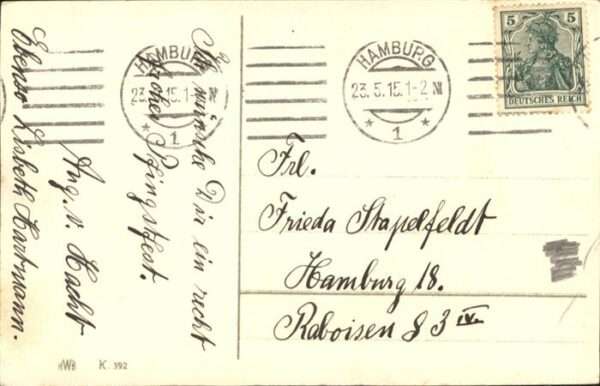 Ich wünsche Dir ein recht
frohes Pfingstfest.
Aug. v. Hacht
Ebenso Lisbeth Hartmann.
HAMBURG
23.5.15.1-2 N
* 1 *
HAMBURG
23.5.15.1-2 N
* 1 *
5 5
DEUTSCHES REICH
Frl.
Frieda Stapelfeldt
Hamburg 18.
Raboisen 83 IV.
HWB K. 392